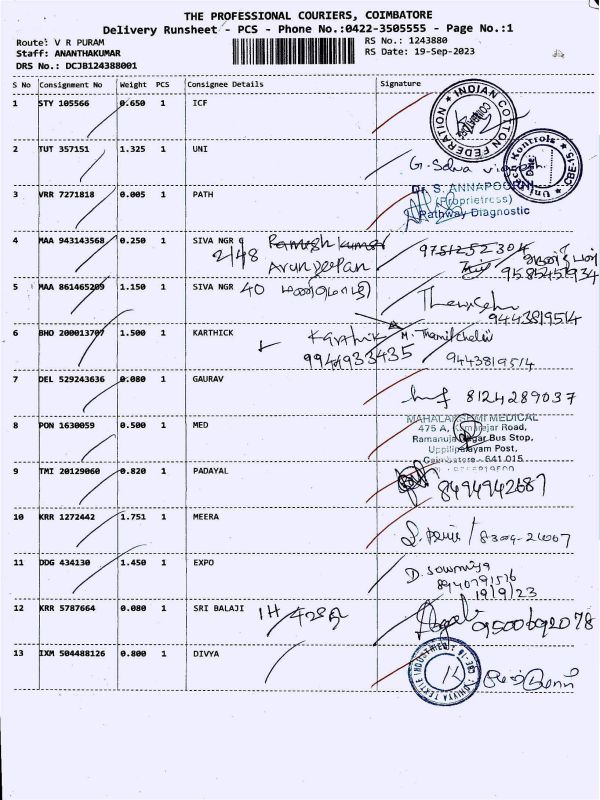 THE PROFESSIONAL COURIERS, COIMBATORE
Delivery Runsheet - PCS - Phone No.:0422-3505555 - Page No.:1
Route: V R PURAM RS No.: 1243880
Staff: ANANTHAKUMAR RS Date: 19-Sep-2023
DRS No.: DCJB124388001
S No Consignment No Weight PCS Consignee Details Signature
1 STY 105566 0.650 1 ICF
INDIAN COTTON FEDERATION COIMBATORE
2 TUT 357151 1.325 1 UNI
G. Selva
Controls CBE-15
Date
3 VRR 7271818 0.005 1 PATH
Dr. S. ANNAPOORNI
(Proprietress)
Pathway Diagnostic
4 MAA 943143568 0.250 1 SIVA NGR 9 Ramesh Kumar 9751252304
2/48 Arun 9585451934
5 MAA 861465209 1.150 1 SIVA NGR 40
9443819514
6 BHD 200013707 1.500 1 KARTHICK Karthik M. Thamilchelvi
9944933435 9443819514
7 DEL 529243636 0.080 1 GAURAV 8124289037
8 PON 1630059 0.500 1 MED
MAHALAKSHMI MEDICAL
475 A, Kamarajar Road,
Ramanuja Nagar Bus Stop,
Uppilipalayam Post,
Coimbatore - 641 015
9 TMI 20129060 0.820 1 PADAYAL 8494942687
10 KRR 1272442 1.751 1 MEERA
11 DDG 434130 1.450 1 EXPO D. Sowmiya
8940791516
19/9/23
12 KRR 5787664 0.080 1 SRI BALAJI 9500692078
13 IXM 504488126 0.800 1 DIVYA
DIVYA TEXTILE INDUSTRIES